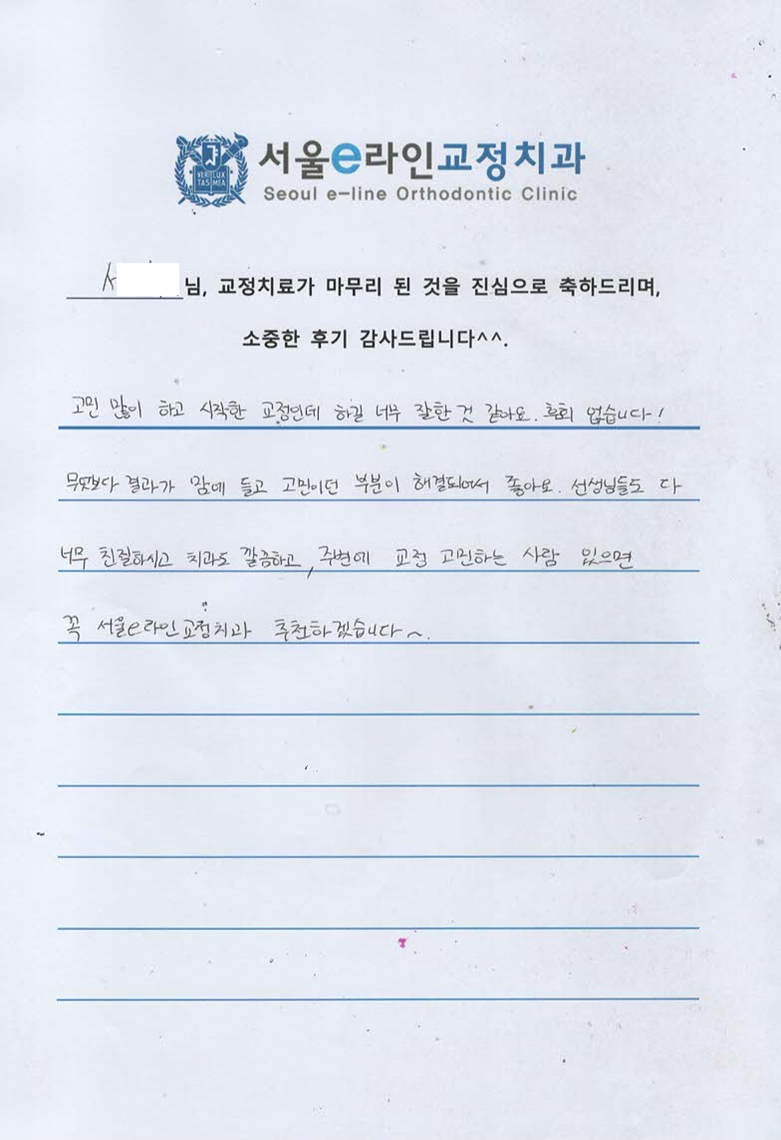 VERI LUX
TAS MEA
서울e라인교정치과
Seoul e-line Orthodontic Clinic
님, 교정치료가 마무리 된 것을 진심으로 축하드리며,
소중한 후기 감사드립니다^^.
고민 많이 하고 시작한 교정인데 하길 너무 잘한 것 같아요. 후회 없습니다!
무엇보다 결과가 맘에 들고 고민이던 부분이 해결되어서 좋아요. 선생님들도 다
너무 친절하시고 치과도 깔끔하고, 주변에 교정 고민하는 사람 있으면
꼭 서울e라인교정치과 추천하겠습니다~.